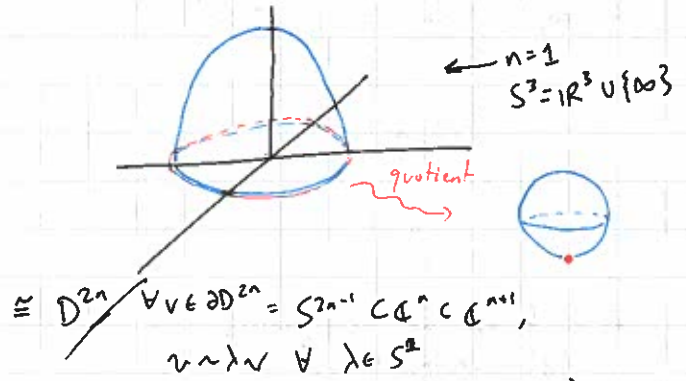 ← n=1
S³=ℝ³ ∪ {∞}
quotient
≅ D²ⁿ ∀ v ∈ ∂D²ⁿ = S²ⁿ⁻¹ ⊂ ℂⁿ ⊂ ℂⁿ⁺¹,
v ~ λv ∀ λ ∈ S¹